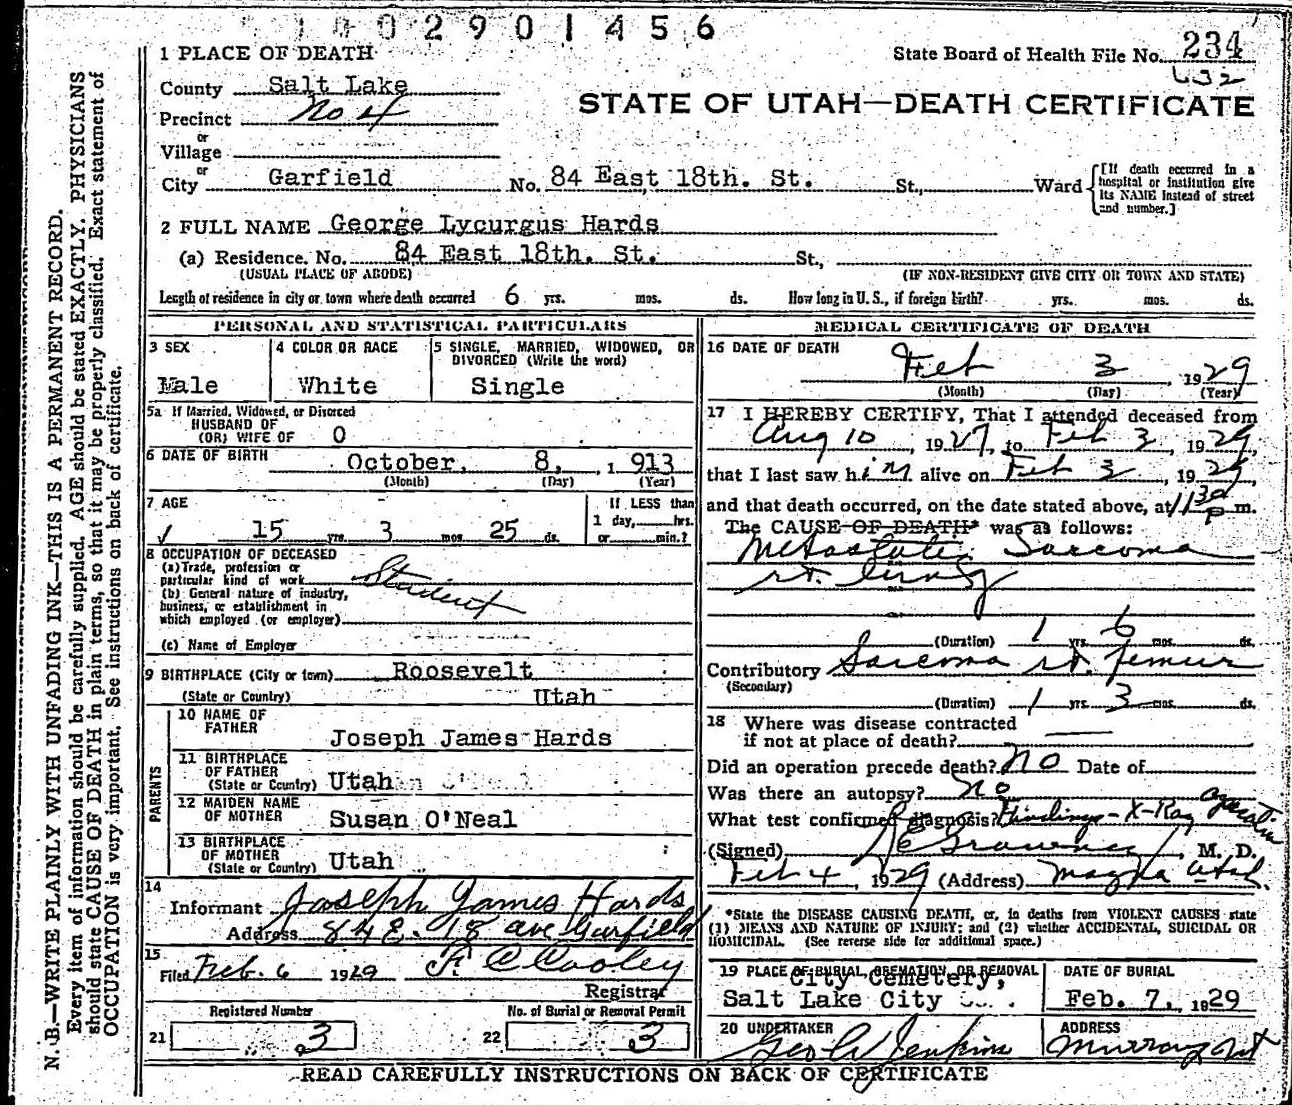 02901456
1 PLACE OF DEATH
State Board of Health File No. 234
632
County Salt Lake
STATE OF UTAH—DEATH CERTIFICATE
Precinct No 4
or
Village
or
City Garfield No. 84 East 18th. St. St., Ward [If death occurred in a hospital or institution give its NAME instead of street and number.]
2 FULL NAME George Lycurgus Hards
(a) Residence. No. 84 East 18th. St. St.,
(USUAL PLACE OF ABODE) (IF NON-RESIDENT GIVE CITY OR TOWN AND STATE)
Length of residence in city or town where death occurred 6 yrs. mos. ds. How long in U. S., if foreign birth? yrs. mos. ds.
PERSONAL AND STATISTICAL PARTICULARS
3 SEX
Male
4 COLOR OR RACE
White
5 SINGLE, MARRIED, WIDOWED, OR DIVORCED (Write the word)
Single
5a If Married, Widowed, or Divorced
HUSBAND OF
(OR) WIFE OF 0
6 DATE OF BIRTH October, 8, 1913
(Month) (Day) (Year)
7 AGE
15 yrs. 3 mos. 25 ds.
If LESS than
1 day, hrs.
or min.?
8 OCCUPATION OF DECEASED
(a) Trade, profession or
particular kind of work Student
(b) General nature of industry,
business, or establishment in
which employed (or employer)
(c) Name of Employer
9 BIRTHPLACE (City or town) Roosevelt
(State or Country) Utah
PARENTS
10 NAME OF FATHER Joseph James Hards
11 BIRTHPLACE OF FATHER (State or Country) Utah
12 MAIDEN NAME OF MOTHER Susan O'Neal
13 BIRTHPLACE OF MOTHER (State or Country) Utah
14
Informant Joseph James Hards
Address 84 E. 18 ave Garfield
15
Filed Feb. 6 1929 F. C Cooley
Registrar
Registered Number
21 3
No. of Burial or Removal Permit
22 3
MEDICAL CERTIFICATE OF DEATH
16 DATE OF DEATH
Feb 3, 1929
(Month) (Day) (Year)
17 I HEREBY CERTIFY, That I attended deceased from
Aug 10, 1927, to Feb 3, 1929,
that I last saw him alive on Feb 3, 1929,
and that death occurred, on the date stated above, at 1130 P m.
The CAUSE OF DEATH* was as follows:
Metastatic Sarcoma
rt. lung
(Duration) 1 yrs. 6 mos. ds.
Contributory Sarcoma rt. femur
(Secondary)
(Duration) 1 yrs. 3 mos. ds.
18 Where was disease contracted
if not at place of death?
Did an operation precede death? No Date of
Was there an autopsy? No
What test confirmed diagnosis? Findings - X-Ray operation
(Signed) M. D.
Feb 4, 1929 (Address) Magna Utah.
*State the DISEASE CAUSING DEATH, or, in deaths from VIOLENT CAUSES state
(1) MEANS AND NATURE OF INJURY; and (2) whether ACCIDENTAL, SUICIDAL OR
HOMICIDAL. (See reverse side for additional space.)
19 PLACE OF BURIAL, CREMATION, OR REMOVAL
City Cemetery,
Salt Lake City
DATE OF BURIAL
Feb. 7, 1929
20 UNDERTAKER
Geo W Jenkins
ADDRESS
Murray Ut
READ CAREFULLY INSTRUCTIONS ON BACK OF CERTIFICATE
N. B.—WRITE PLAINLY WITH UNFADING INK—THIS IS A PERMANENT RECORD.
Every item of information should be carefully supplied. AGE should be stated EXACTLY. PHYSICIANS
should state CAUSE OF DEATH in plain terms, so that it may be properly classified. Exact statement of
OCCUPATION is very important. See instructions on back of certificate.